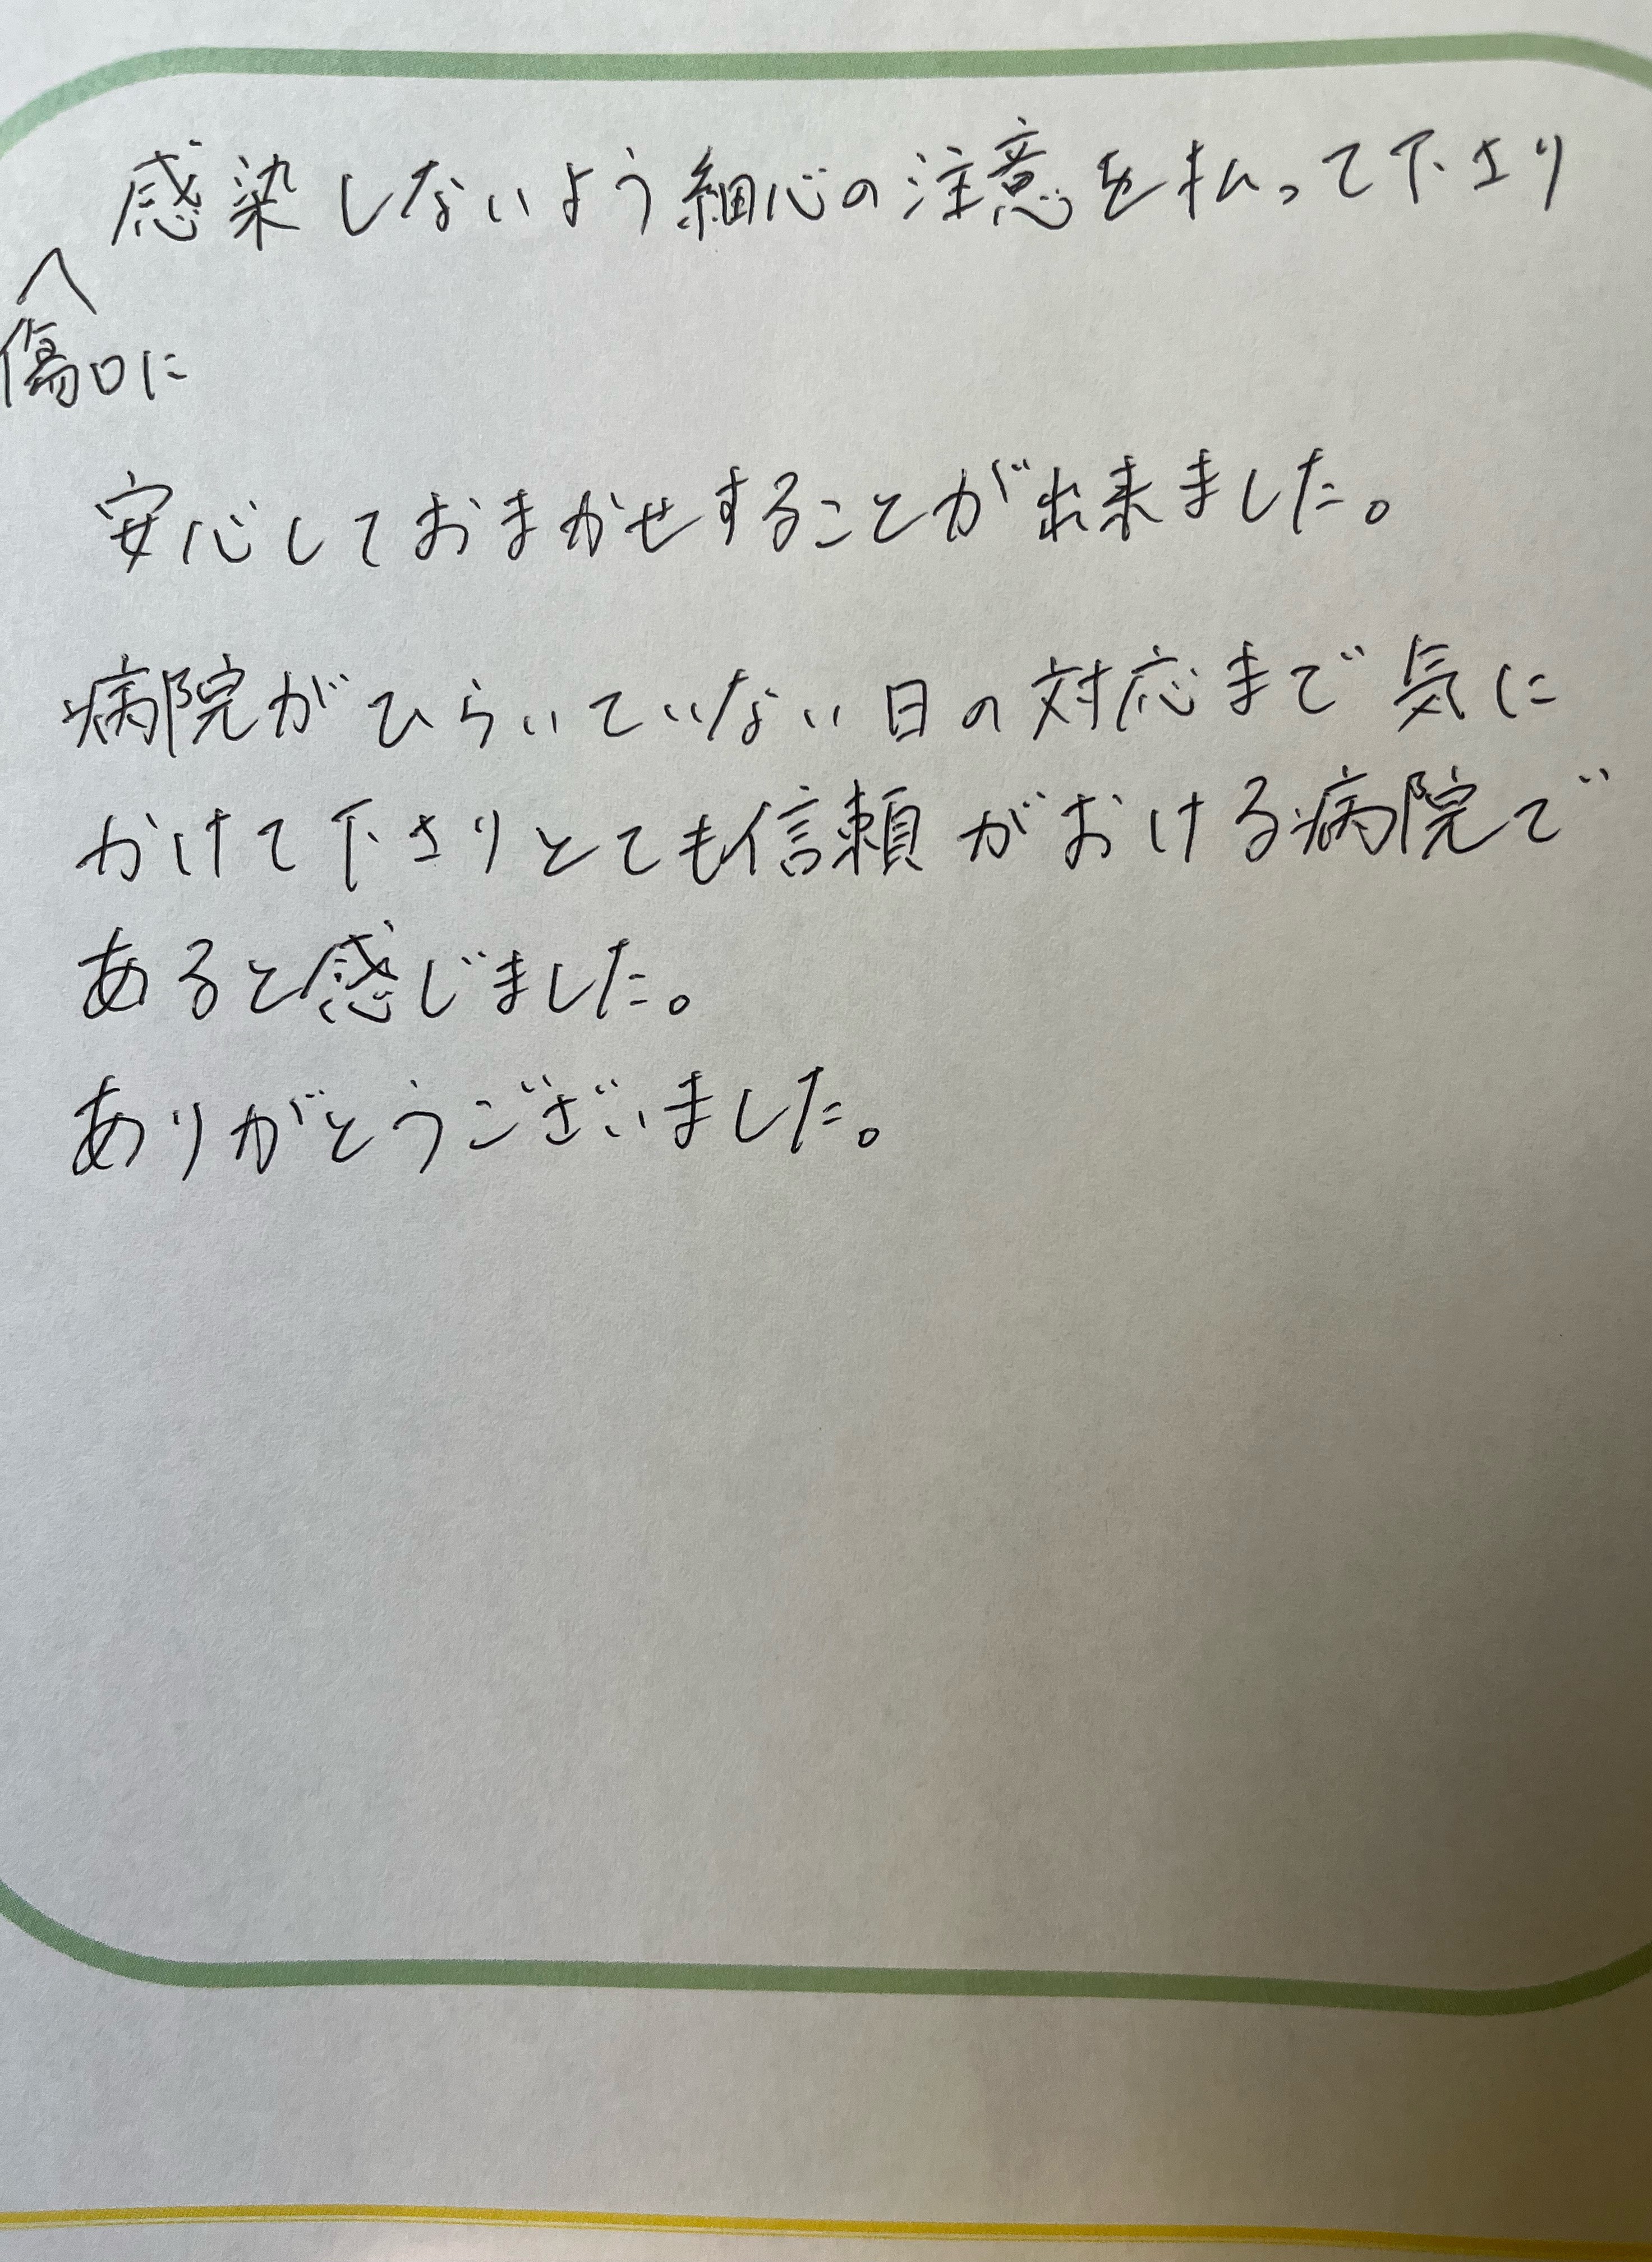 感染しないよう細心の注意を払って下さり
傷口に
安心しておまかせすることが出来ました。
病院がひらいていない日の対応まで気に
かけて下さりとても信頼がおける病院で
あると感じました。
ありがとうございました。